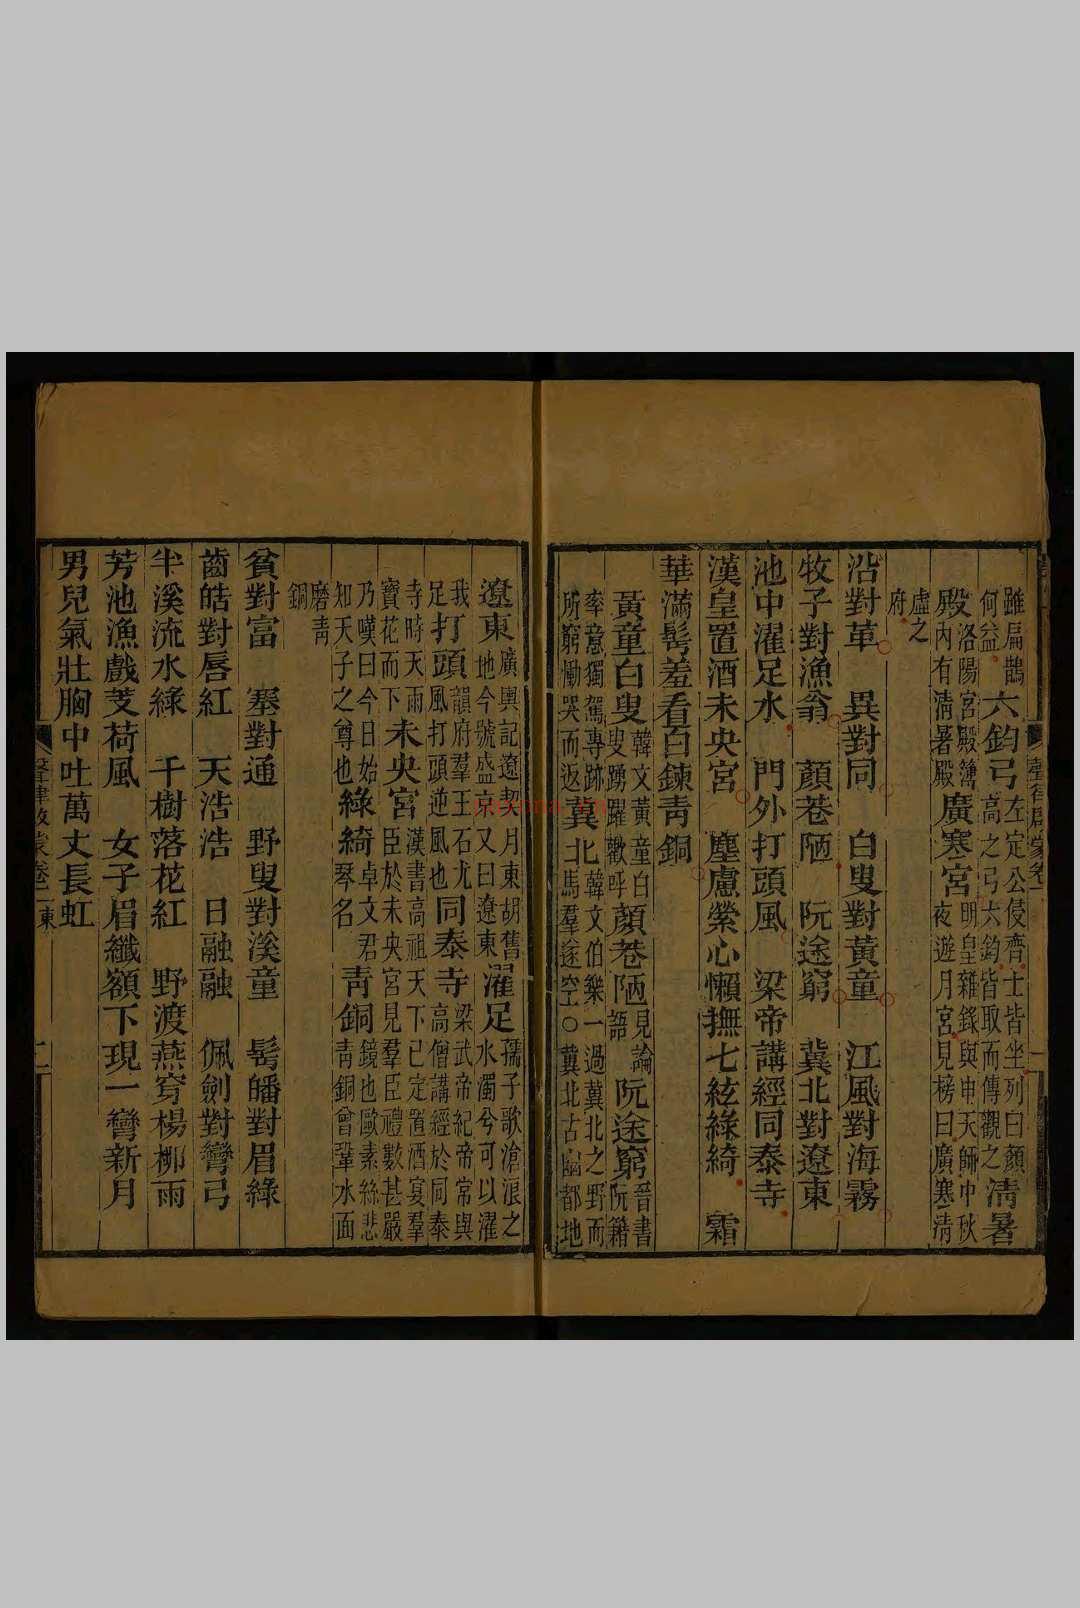 雖扁鵲
何益
六鈞弓
左定公侵齊士皆坐列曰顏
高之弓六鈞皆取而傳觀之
淸暑
殿
洛陽宮殿簿
內有淸暑殿
廣寒宮
明皇雜錄與申天師中秋
夜遊月宮見榜曰廣寒淸
虛之
府
沿對革　異對同　白叟對黃童　江風對海霧
牧子對漁翁　顏巷陋　阮途窮　冀北對遼東
池中濯足水　門外打頭風　梁帝講經同泰寺
漢皇置酒未央宮　塵慮縈心懶撫七絃綠綺　霜
華滿鬢羞看百鍊靑銅
黃童白叟
韓文黃童白
叟踴躍歡呼
顏巷陋
見論
語
阮途窮
晉書
阮籍
率意獨駕專跡
所窮慟哭而返
冀北
韓文伯樂一過冀北之野而
馬羣遂空○冀北古幽都地
遼東
廣輿記遼契丹東胡舊
地今號盛京又曰遼東
濯足
孺子歌滄浪之
水濁兮可以濯
我
足
打頭風
韻府羣玉石尤
風打頭逆風也
同泰寺
梁武帝紀帝常與
高僧講經於同泰
寺時天雨
寶花而下
未央宮
漢書高祖天下已定置酒宴羣
臣於未央宮見羣臣禮數甚嚴
乃嘆曰今日始
知天子之尊也
綠綺
卓文君
琴名
靑銅
鏡也歐素絲悲
靑銅曾鞏水面
磨靑
銅
貧對富　塞對通　野叟對溪童　鬢皤對眉綠
齒皓對唇紅　天浩浩　日融融　佩劍對彎弓
半溪流水綠　千樹落花紅　野渡燕穿楊柳雨
芳池漁戲芰荷風　女子眉纖額下現一彎新月
男兒氣壯胸中吐萬丈長虹
聲律啟蒙卷一
東
二